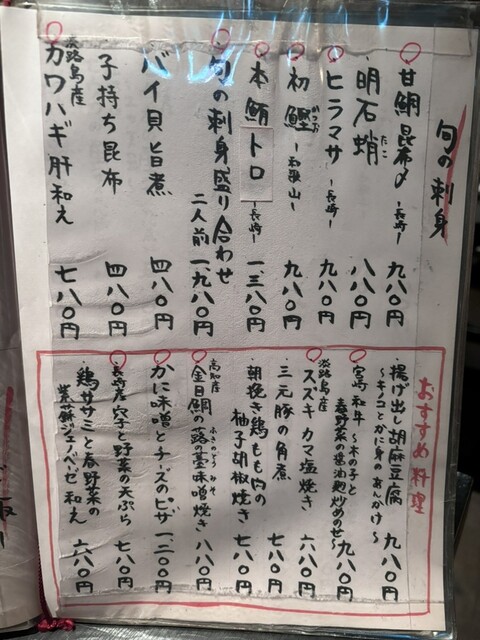 旬の刺身
甘鯛昆布〆 ー長崎ー 九八〇円
明石蛸 たこ 八八〇円
ヒラマサ ー長崎ー 九八〇円
初鰹 かつお ー和歌山ー 九八〇円
本鮪トロ ー長崎ー 一三八〇円
旬の刺身盛り合わせ
二人前 一九八〇円
バイ貝旨煮 四八〇円
子持ち昆布 四八〇円
淡路島産
カワハギ肝和え 七八〇円
おすすめ料理
・揚げ出し胡麻豆腐
〜キノコとかに身のあんかけ〜 九八〇円
・宮崎和牛〜木の子と
春野菜の醤油麹炒めのせ〜 九八〇円
淡路島産
スズキカマ塩焼き 六八〇円
・三元豚の角煮 七八〇円
・朝挽き鶏もも肉の
柚子胡椒焼き 七八〇円
高知産
金目鯛の蕗の薹味噌焼き ふきのとうみそ 八八〇円
かに味噌とチーズのピザ 一、二〇〇円
長崎産穴子と野菜の天ぷら 七八〇円
・鶏ササミと春野菜の
紫蘇ジェノベーゼ和え 六八〇円